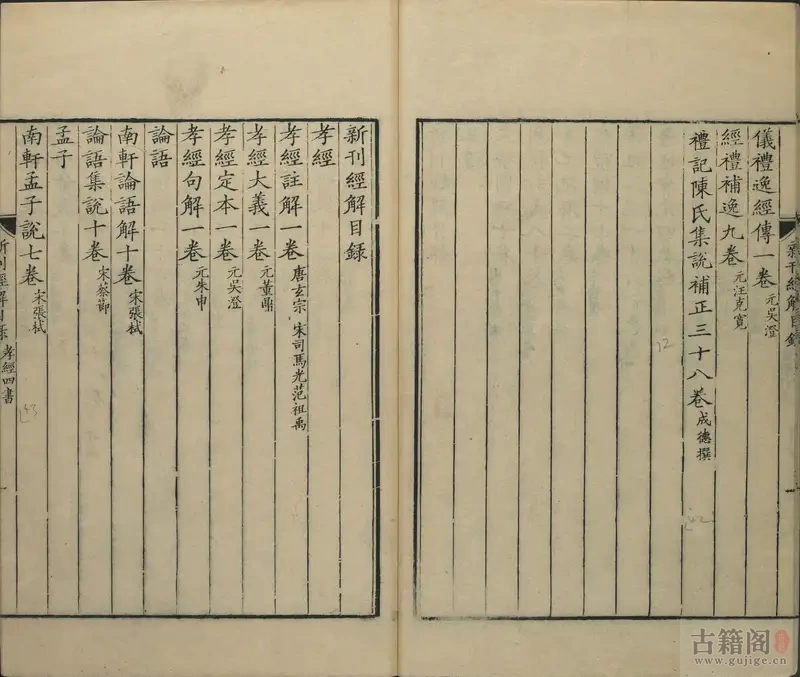 儀禮逸經傳一卷 元吳澄
經禮補逸九卷 元汪克寬
禮記陳氏集說補正三十八卷 成德撰
新刊經解目錄
孝經
孝經註解一卷 唐玄宗 宋司馬光 范祖禹
孝經大義一卷 元董鼎
孝經定本一卷 元吳澄
孝經句解一卷 元朱申
論語
南軒論語解十卷 宋張栻
論語集說十卷 宋蔡節
孟子
南軒孟子說七卷 宋張栻
新刊經解目錄 孝經四書
古籍阁
www.gujige.cn